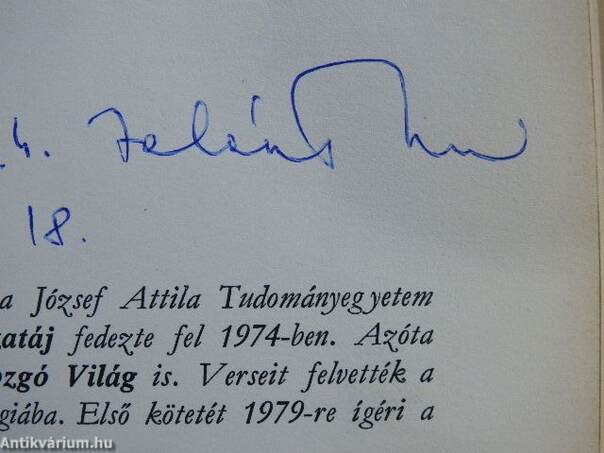 .4. Zalán
18.
a József Attila Tudományegyetem
zatáj fedezte fel 1974-ben. Azóta
ozgó Világ is. Verseit felvették a
giába. Első kötetét 1979-re ígéri a
Antikvárium.hu